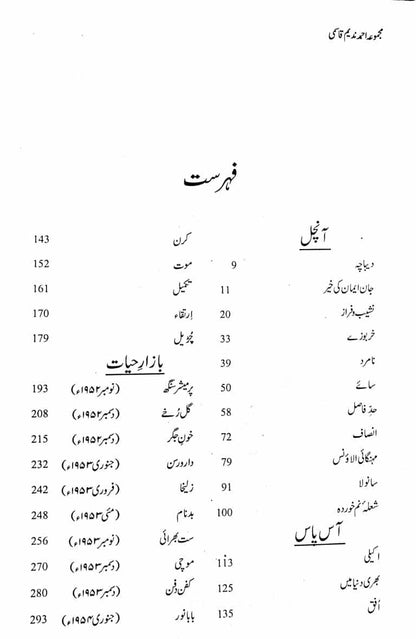 مجموعہ احمد ندیم قاسمی
فہرست
آنچل
دیباچہ 9
جان ایمان کی خیر 11
نشیب و فراز 20
خربوزے 33
نامرد 39
سائے 50
حدِ فاصل 58
انصاف 72
مہنگائی الاؤنس 79
سانولا 91
شعلۂ نم خوردہ 100
آس پاس
اکیلی 113
بھری دنیا میں 125
اُفق 135
کرن 143
موت 152
تکمیل 161
اِرتقاء 170
چڑیل 179
بازارِ حیات
پرمیشر سنگھ (نومبر ۱۹۵۲ء) 193
گل رُخے (دسمبر ۱۹۵۲ء) 208
خونِ جگر (دسمبر ۱۹۵۲ء) 215
دار و رسن (جنوری ۱۹۵۳ء) 232
زلیخا (فروری ۱۹۵۳ء) 242
بدنام (مئی ۱۹۵۳ء) 248
ست بھرائی (نومبر ۱۹۵۳ء) 256
موچی (دسمبر ۱۹۵۳ء) 270
کفن دفن (دسمبر ۱۹۵۳ء) 280
بابا نور (جنوری ۱۹۵۴ء) 293